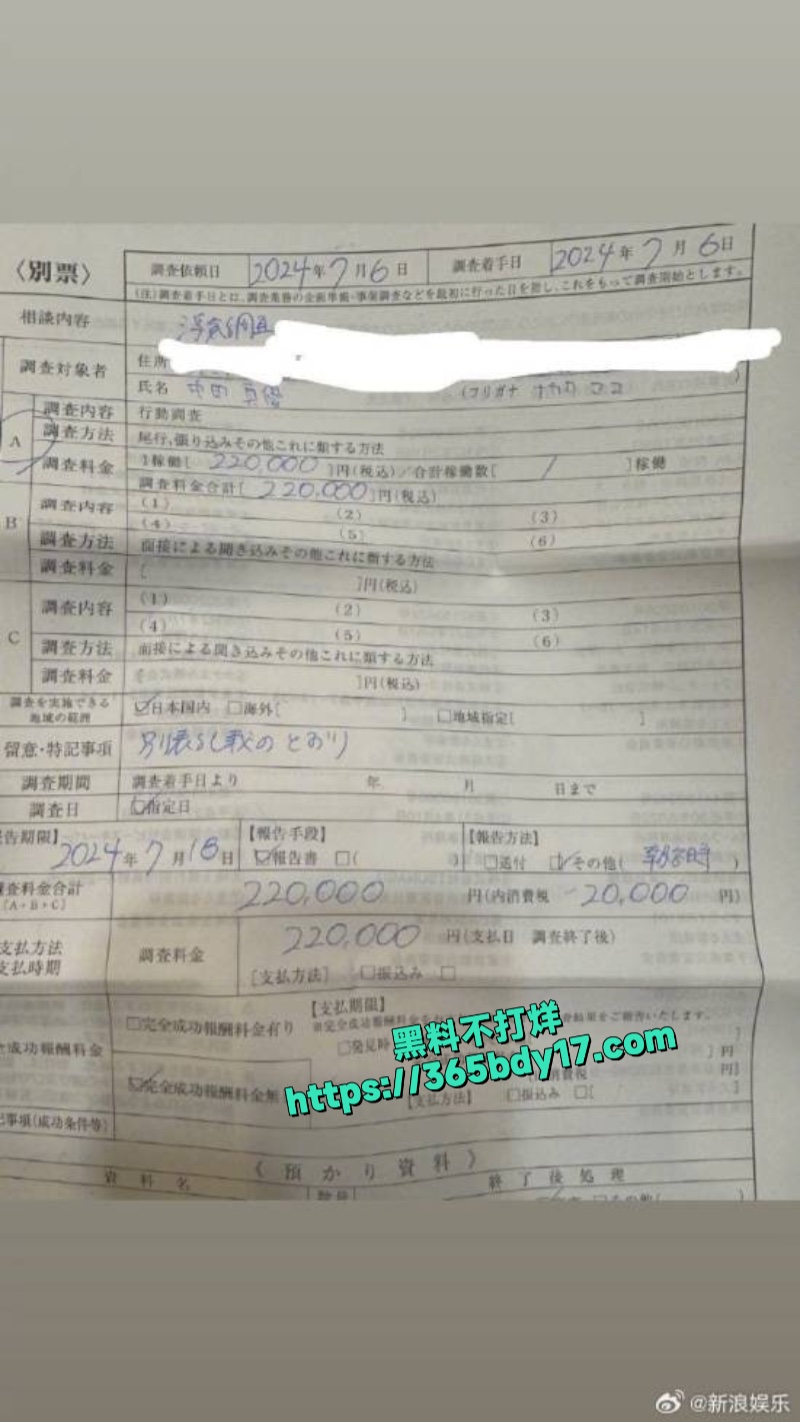 〈別票〉
調査依頼日 2024年7月6日 調査着手日 2024年7月6日
(注)調査着手日とは、調査業務の企画準備・事前調査などを最初に行った日を指し、これをもって調査開始とします。
相談内容 浮気調査
調査対象者 住所
氏名 (フリガナ )
A 調査内容 行動調査
調査方法 尾行、張り込みその他これに類する方法
調査料金 1稼働[ 220,000 ]円(税込)/合計稼働数[ / ]稼働
調査料金合計[ 220,000 ]円(税込)
B 調査内容 (1) (2) (3)
(4) (5) (6)
調査方法 面接による聞き込みその他これに類する方法
調査料金 [ ]円(税込)
C 調査内容 (1) (2) (3)
(4) (5) (6)
調査方法 面接による聞き込みその他これに類する方法
調査料金 [ ]円(税込)
調査を実施できる地域の範囲 ☑日本国内 □海外[ ] □地域指定[ ]
留意・特記事項 別表記載のとおり
調査期間 調査着手日より 年 月 日まで
調査日 ☑指定日
告期限】 2024年7月18日 【報告手段】 ☑報告書 □( ) 【報告方法】 □送付 ☑その他( )
査料金合計 [A+B+C] 220,000 円(内消費税 20,000 円)
支払方法 支払時期 調査料金 220,000 円(支払日 調査終了後)
[支払方法] □振込み □
全成功報酬料金 □完全成功報酬料金有り 【支払期限】
査結果をご報告いたします。
□発見時 ]円
☑完全成功報酬料金無 消費税 円]
【支払方法】 □振込み □[ ]
記事項(成功条件等)
《 預かり資料 》
資料名 終了後処理
黑料不打烊
https://365bdy17.com
@新浪娱乐